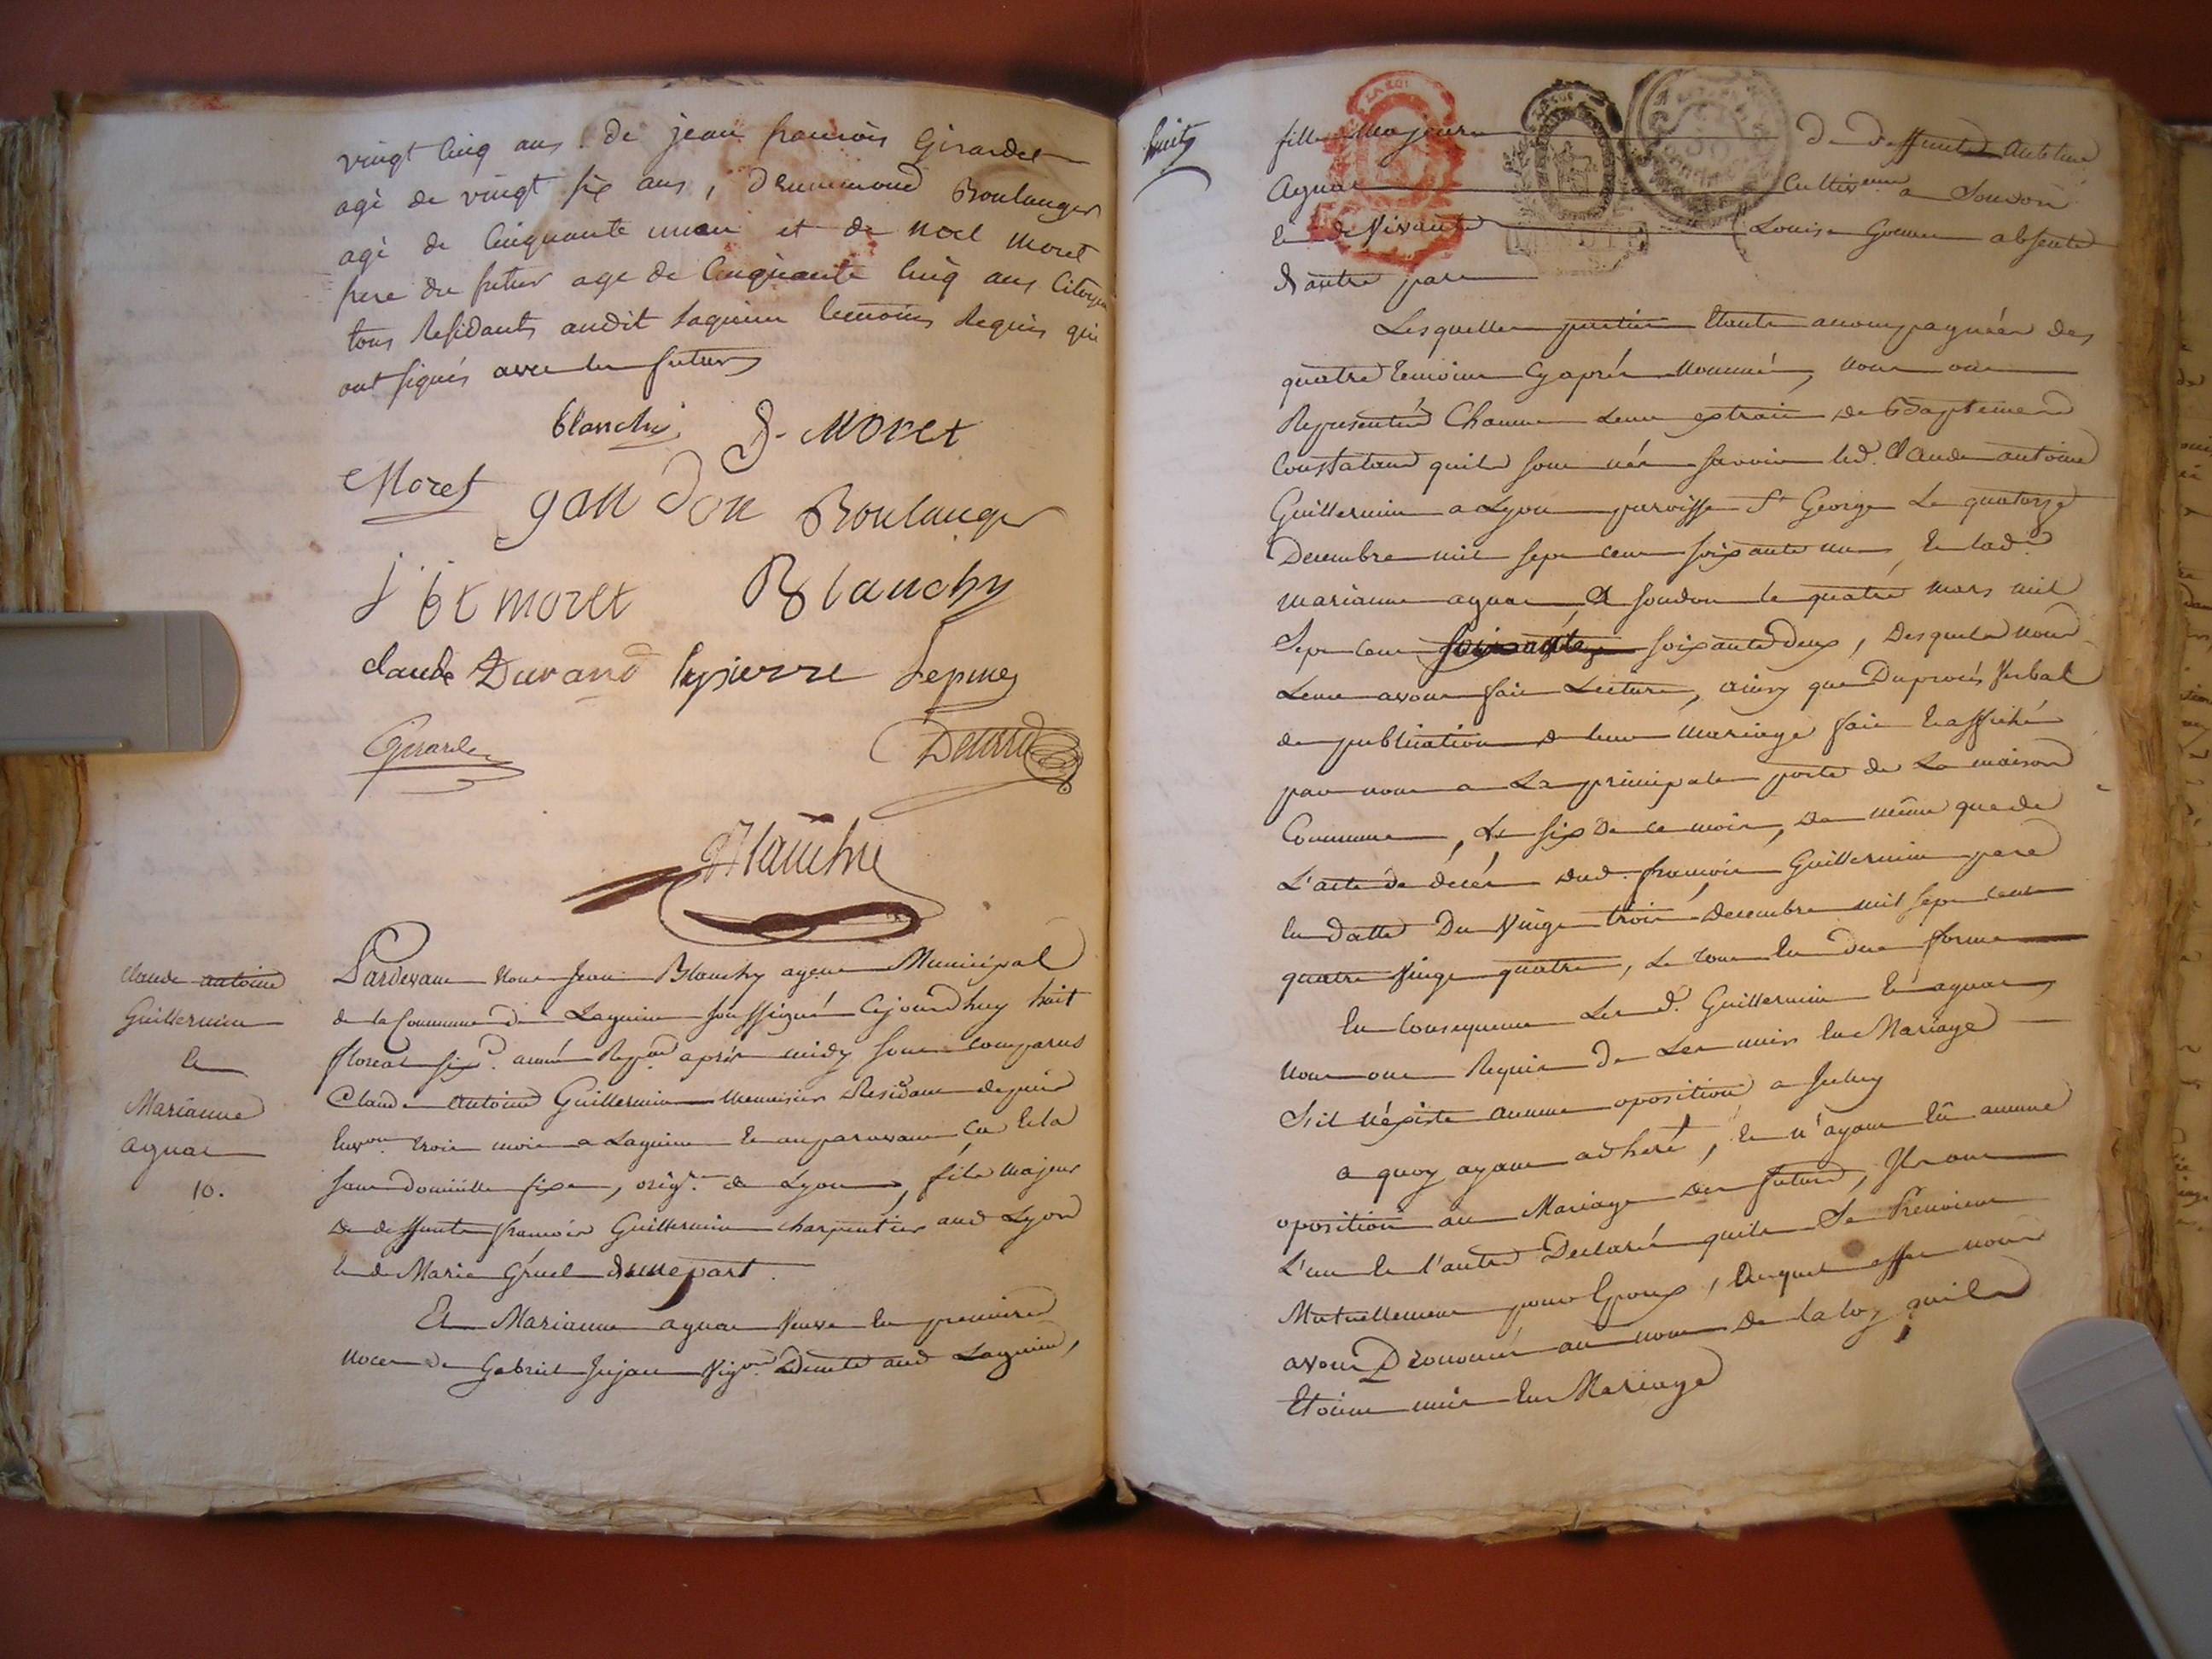 vingt cinq ans. de jean francois Girardet
agé de vingt six ans, Boulanger
agé de cinquante un an et de noel moret
frere du futur age de cinquante cinq ans Citoyen
tous Residants audit Lagnieu temoins Requis qui
ont signés avec les futurs
blanchi J. MOret
Moret gandon Boulanger
j b t moret Blanchy
claude Durand Lepine
Girardet
Blanchi
claude antoine
Guillermin
et
Marianne
aynar
10.
Pardevant Nous Jean Blanchy agent Municipal
de la Commune de Lagnieu soussigné Cejourdhuy huit
floreal six.e année Rep.ne aprés midy sont comparus
Claude Antoine Guillermin Menuisier Residant depuis
env.on trois mois a Lagnieu et auparavant ca et la
sans domicille fixe, orig.re de Lyon, fils majeur
de deffunts francois Guillermin charpentier aud Lyon
et de Marie Gruel d'une part.
Et Marianne aynar Veuve en premiere
noces de Gabriel Vig.on aud Lagnieu,
huit
fille Majeure de deffunt Antoine
Aynar Cultivateur a Soudon
et de Vivante Louise absente
d'autre part
Lesquelles parties Etants accompagnées des
quatre temoins Cy aprés Nommés, nous ont
Representé Chacun leur extrait de Baptemes
Constatant quils sont nés savoir led. Claude antoine
Guillermin a Lyon paroisse St George Le quatorze
Decembre mil sept cent soixante un, et lad.e
marianne aynar, a soudon le quatre mars mil
Sept cent soixante deux, desquels nous
Leur avons fait Lecture, ainsy que Du procés Verbal
de publication de leur mariage fait et affiché
par nous a La principale porte de La maison
Commune, le six de ce mois, de même que de
L'acte de décés dud. francois Guillermin pere
en datte Du Vingt trois Decembre mil sept cent
quatre Vingt quatre, Le tout en due forme
En Consequence Lesd. Guillermin et aynar
nous ont Requis de Les unir en Mariage
Sil n'éxiste aucune oposition a Iceluy
a quoy ayant adheré, et n'ayant eû aucune
oposition au Mariage des futurs, Ils ont
L'un et l'autre Declaré quils Se Prenoient
Mutuellement pour Epoux, auquel effet nous
avons Prononcé au nom de la loy quils
Etoient unis En Mariage